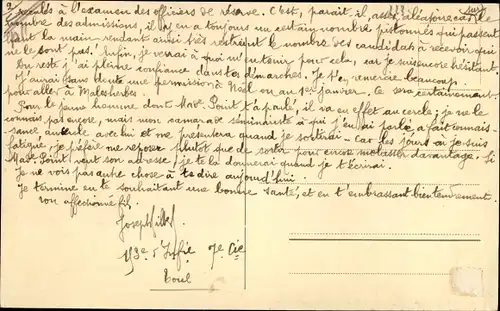 reculés à l'examen des officiers de réserve. C'est, paraît-il, assez aléatoire, car le
nombre des admissions, il y en a toujours un certain nombre pistonnés qui passent
sous la main rendant ainsi très restreint le nombre des candidats à recevoir qui
ne le sont pas. Enfin, je verrai à quoi m'en tenir pour cela, car je suis encore hésitant
Du reste j'ai pleine confiance dans tes démarches. Je t'en remercie beaucoup.
J'aurai sans doute une permission à Noël ou au 1er janvier. Ce sera certainement
pour aller à Malesherbes.
Pour le jeune homme dont Mad. Point t'a parlé, il va en effet au cercle; je ne le
connais pas encore, mais mon camarade séminariste à qui j'en ai parlé a fait connais-
sance avec lui et me présentera quand je sortirai. Car les jours où je suis
fatigué, je préfère me reposer plutôt que de sortir pour encore davantage. Si
Mad. Point veut son adresse, je te la donnerai quand je t'écrirai.
Je ne vois pas autre chose à te dire aujourd'hui.
Je termine en te souhaitant une bonne santé, et en t'embrassant bien tendrement.
Ton affectionné fils,
Joseph
153e d'Infie 7e Cie
Toul